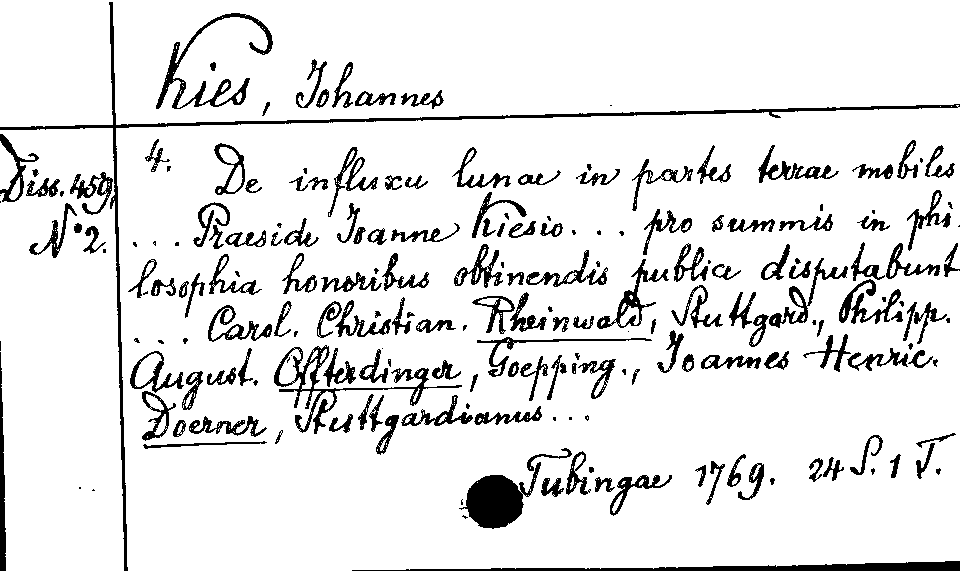 Kies, Johannes
Diss. 459,
N° 2.
4. De influxu lunae in partes terrae mobiles
... Praeside Joanne Kiesio... pro summis in phi-
losophia honoribus obtinendis publice disputabunt
... Carol. Christian. Rheinwald, Stuttgard., Philipp.
August. Offterdinger, Goepping., Joannes Henric.
Doerner, Stuttgardianus...
Tubingae 1769. 24 S. 1 T.